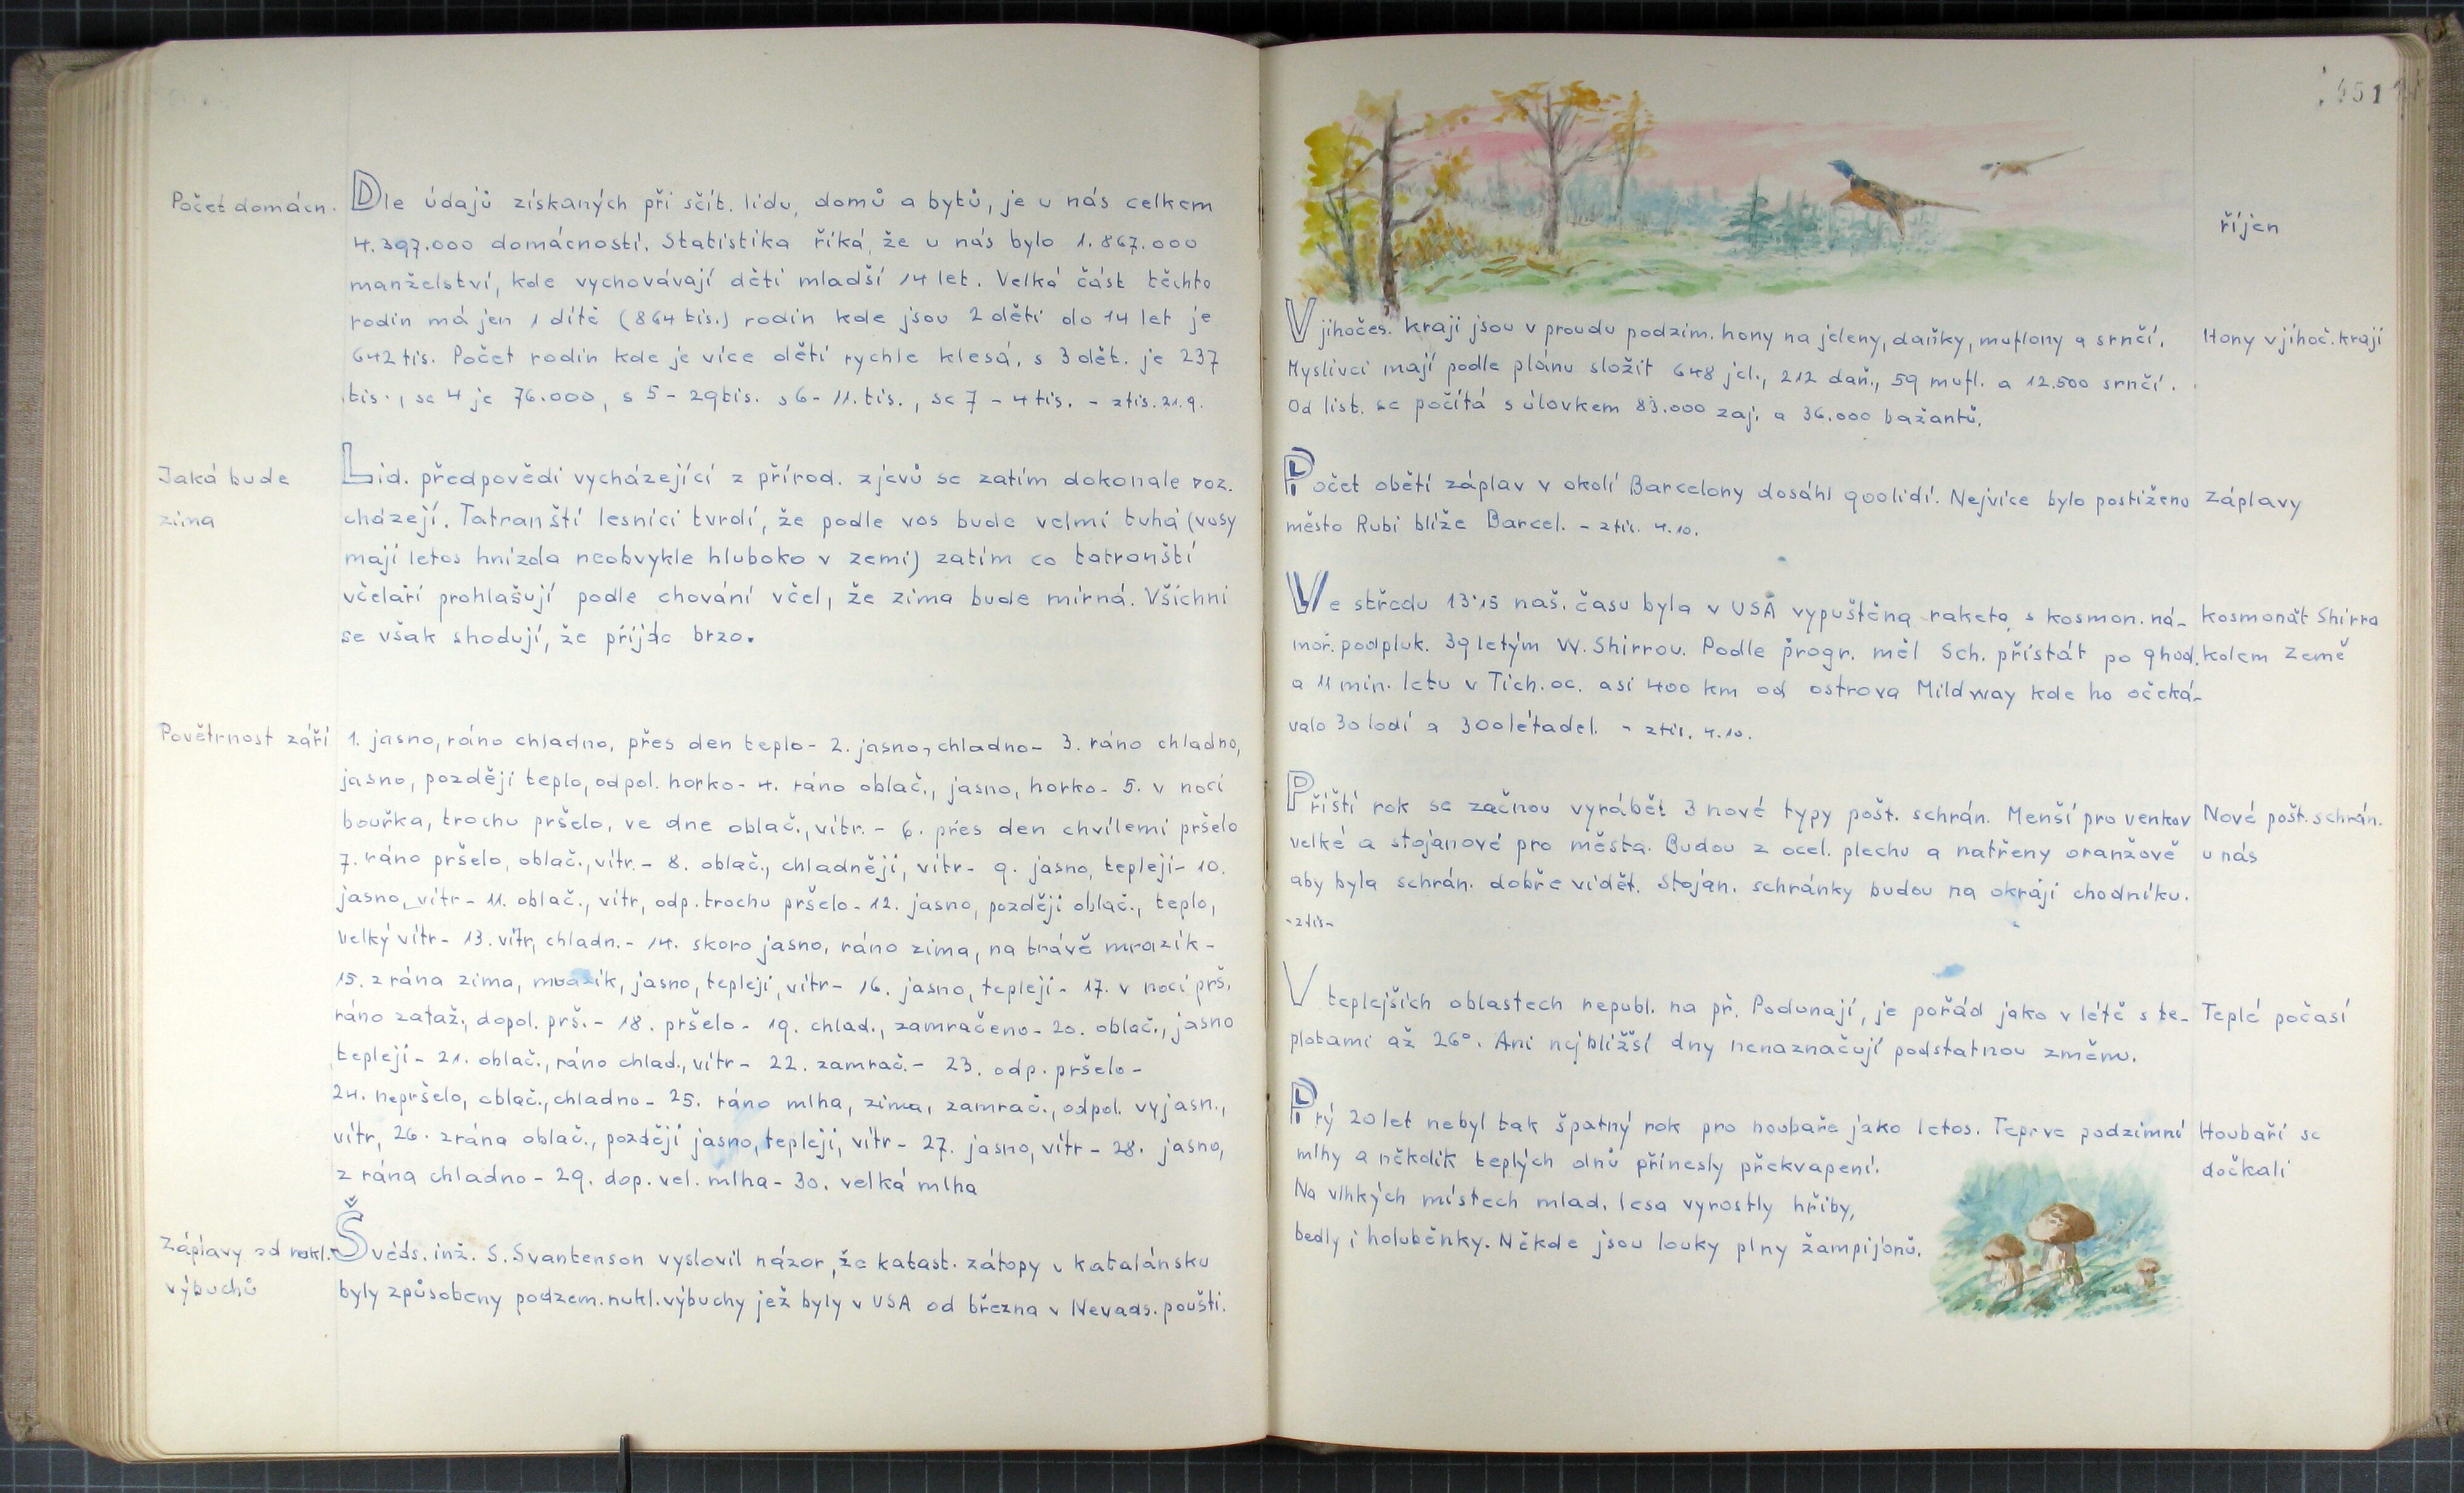 Počet domácn.
Dle údajů získaných při sčít. lidu, domů a bytů, je u nás celkem
4.397.000 domácností. Statistika říká, že u nás bylo 1.867.000
manželství, kde vychovávají děti mladší 14 let. Velká část těchto
rodin má jen 1 dítě (864 tis.) rodin kde jsou 2 děti do 14 let je
642 tis. Počet rodin kde je více dětí rychle klesá. s 3 dět. je 237
tis., se 4 je 76.000, s 5 - 29 tis. s 6 - 11. tis., se 7 - 4 tis. - ztis. 21.9.
Jaká bude
zima
Lid. předpovědi vycházející z přírod. zjevů se zatím dokonale roz.
cházejí. Tatranští lesníci tvrdí, že podle vos bude velmi tuhá (vosy
mají letos hnízda neobvykle hluboko v zemi) zatím co tatranští
včelaři prohlašují podle chování včel, že zima bude mírná. Všichni
se však shodují, že příjde brzo.
Povětrnost září
1. jasno, ráno chladno, přes den teplo - 2. jasno, chladno - 3. ráno chladno,
jasno, později teplo, odpol. horko - 4. ráno oblač., jasno, horko - 5. v noci
bouřka, trochu pršelo, ve dne oblač., vítr. - 6. přes den chvílemi pršelo
7. ráno pršelo, oblač., vítr. - 8. oblač., chladněji, vítr - 9. jasno, tepleji - 10.
jasno, vítr - 11. oblač., vítr, odp. trochu pršelo - 12. jasno, později oblač., teplo,
velký vítr - 13. vítr, chladn. - 14. skoro jasno, ráno zima, na trávě mrazík -
15. z rána zima, mrazík, jasno, tepleji, vítr - 16. jasno, tepleji - 17. v noci prš.
ráno zataž., dopol. prš. - 18. pršelo - 19. chlad., zamračeno - 20. oblač., jasno
tepleji - 21. oblač., ráno chlad., vítr - 22. zamrač. - 23. odp. pršelo -
24. nepršelo, oblač., chladno - 25. ráno mlha, zima, zamrač., odpol. vyjasn.,
vítr, 26. zrána oblač., později jasno, tepleji, vítr - 27. jasno, vítr - 28. jasno,
z rána chladno - 29. dop. vel. mlha - 30. velká mlha
Záplavy od nukl.
výbuchů
Švéds. inž. S. Svantenson vyslovil názor, že katast. zátopy v Katalánsku
byly způsobeny podzem. nukl. výbuchy jež byly v USA od března v Nevads. poušti.
451
říjen
V jihočes. kraji jsou v proudu podzim. hony na jeleny, daňky, muflony a srnčí.
Myslivci mají podle plánu složit 648 jel., 212 daň., 59 mufl. a 12.500 srnčí.
Od list. se počítá s úlovkem 83.000 zaj. a 36.000 bažantů.
Hony v jihoč. kraji
Počet obětí záplav v okolí Barcelony dosáhl 900 lidí. Nejvíce bylo postiženo
město Rubi blíže Barcel. - ztis. 4.10.
záplavy
Ve středu 13.15 naš. času byla v USA vypuštěna raketa s kosmon. ná-
moř. podpluk. 39 letým W. Shirrou. Podle progr. měl Sch. přistát po 9 hod.
a 11 min. letu v Tich. oc. asi 400 km od ostrova Mildway kde ho očeká-
valo 30 lodí a 300 letadel. - ztis. 4.10.
kosmonát Shirra
kolem Země
Příští rok se začnou vyrábět 3 nové typy pošt. schrán. Menší pro venkov
velké a stojanové pro města. Budou z ocel. plechu a natřeny oranžově
aby byla schrán. dobře vidět. Stojan. schránky budou na okraji chodníku.
- ztis -
Nové pošt. schrán.
u nás
V teplejších oblastech republ. na př. Podunají, je pořád jako v létě s te-
plotami až 26°. Ani nejbližší dny nenaznačují podstatnou změnu.
Teplé počasí
Prý 20 let nebyl tak špatný rok pro houbaře jako letos. Teprve podzimní
mlhy a několik teplých dnů přinesly překvapení.
Na vlhkých místech mlad. lesa vyrostly hřiby,
bedly i holuběnky. Někde jsou louky plny žampijonů.
Houbaři se
dočkali